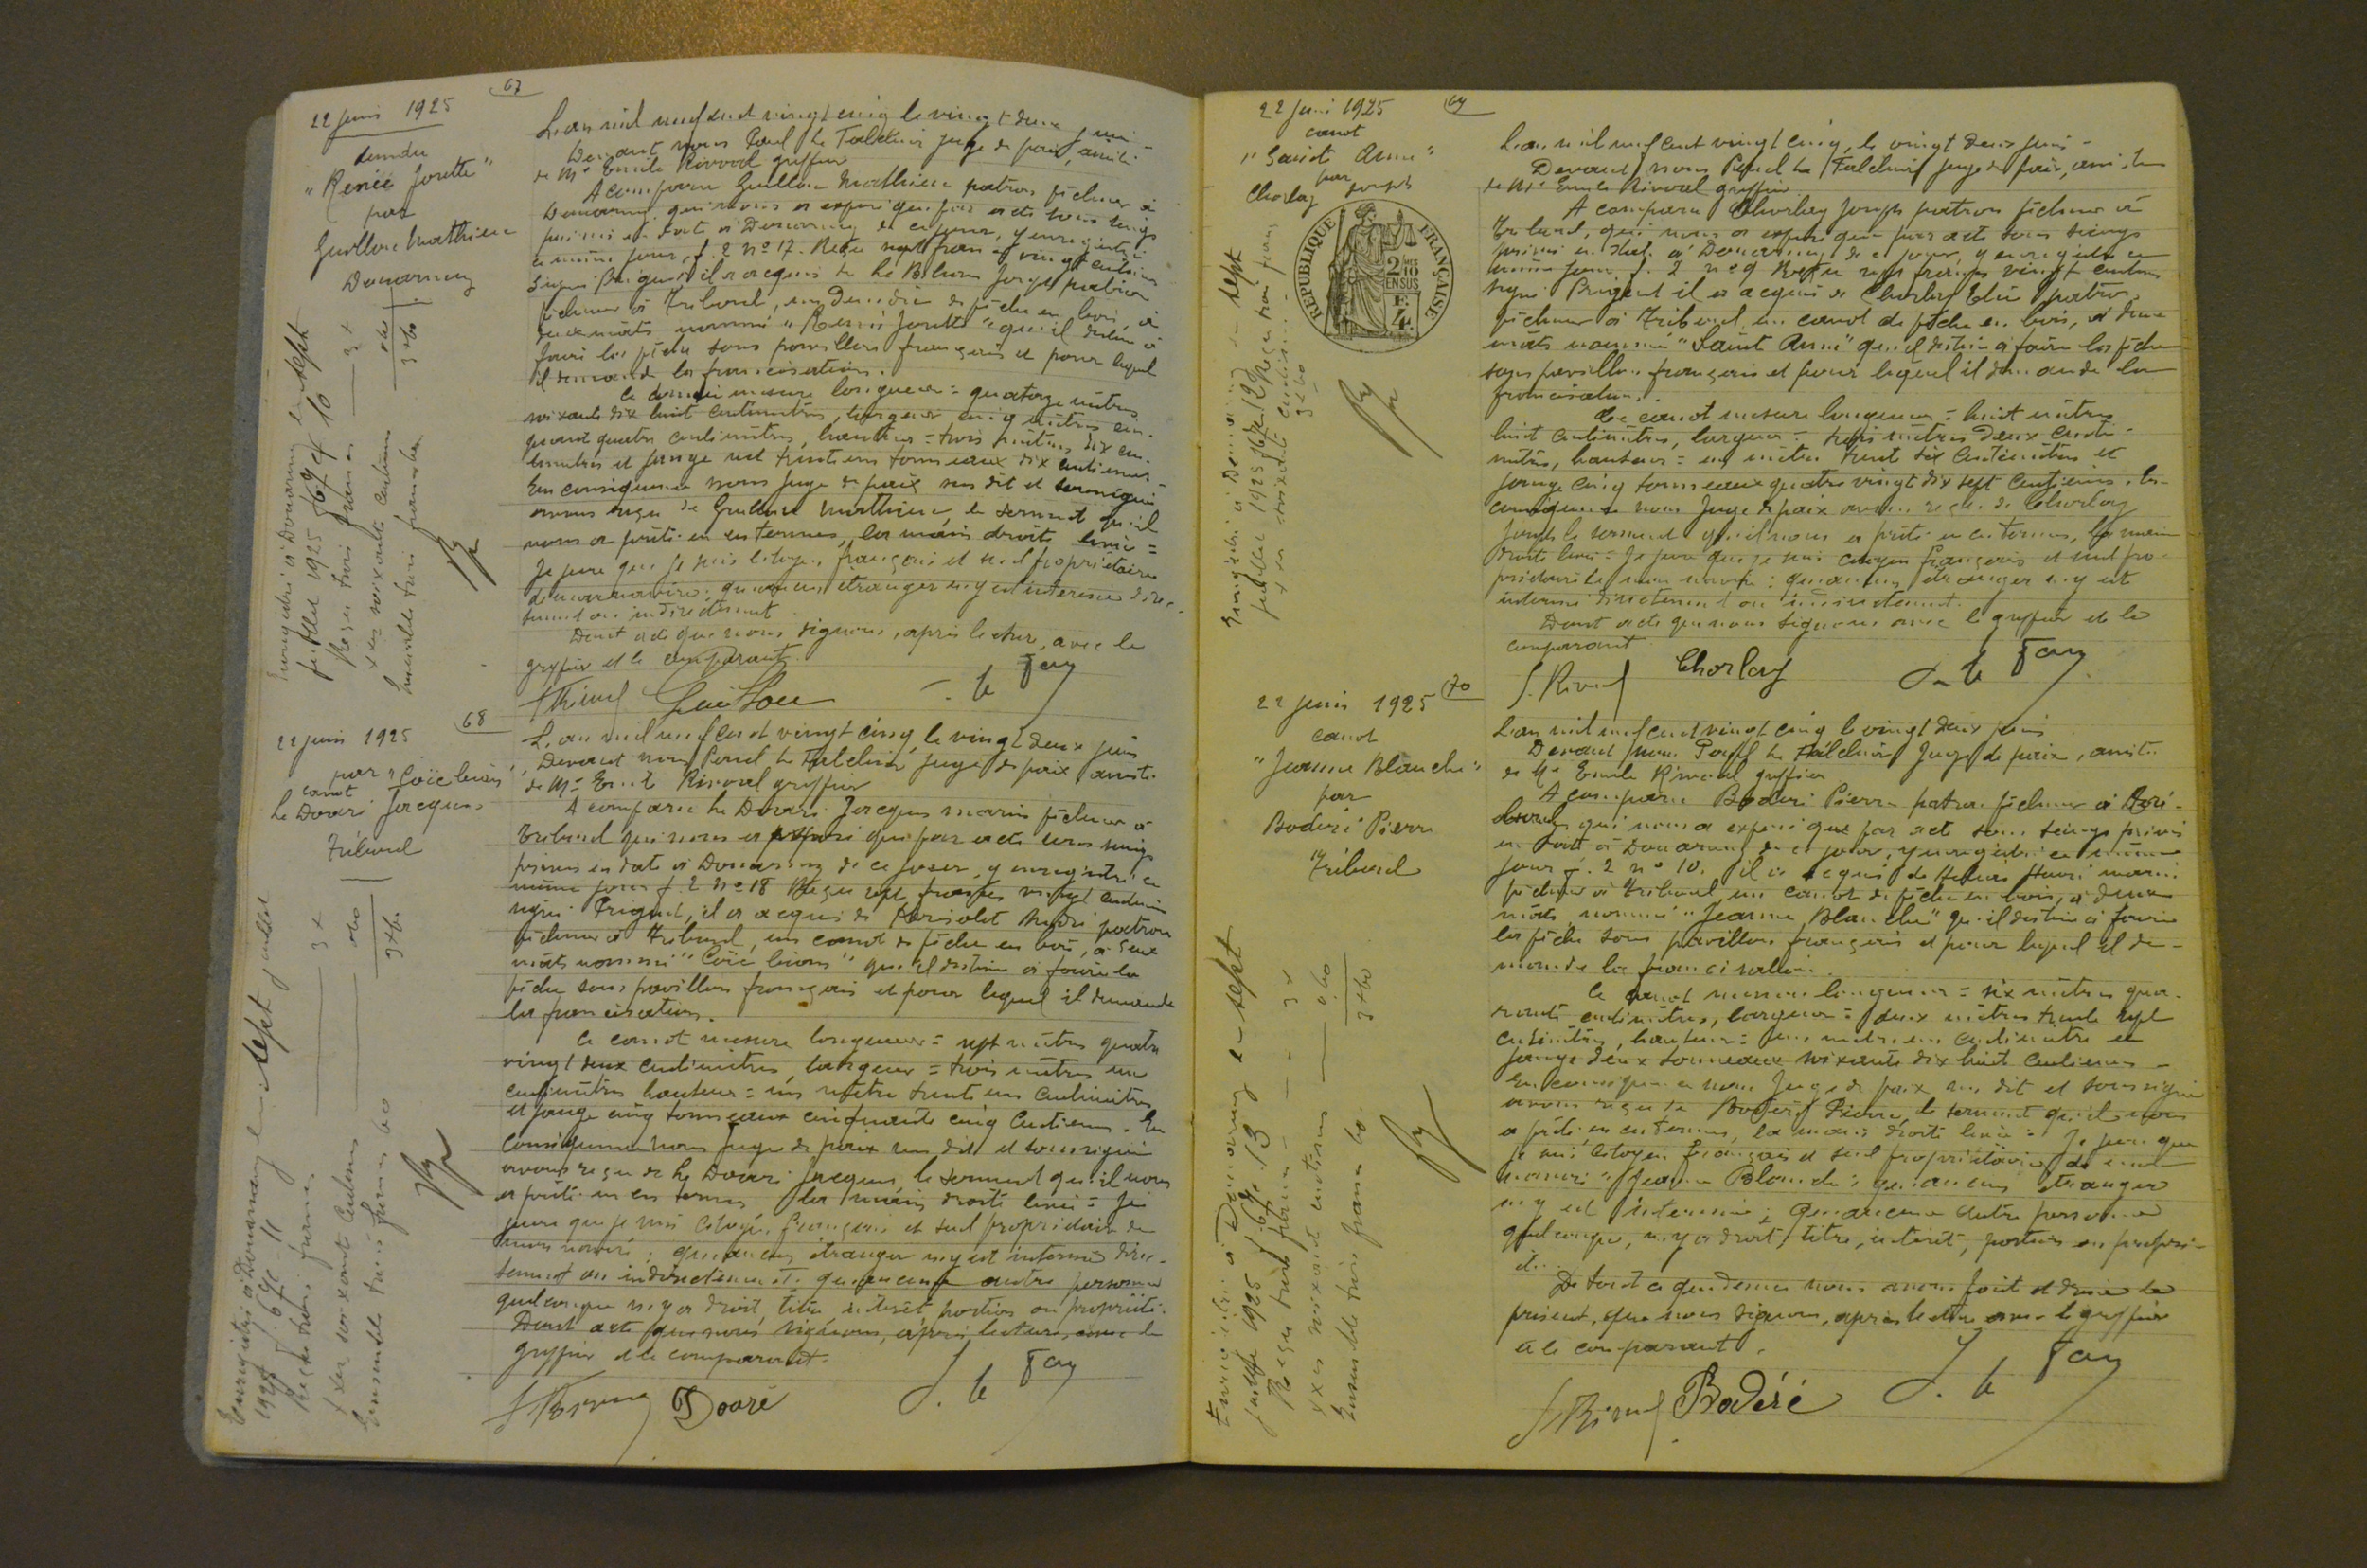 67
22 juin 1925
dundee
"Renée Josette"
par
Guillou Mathieu
Douarnenez
L'an mil neuf cent vingt cinq le vingt deux juin
Devant nous Paul Le Juge de paix, assisté
de Me Emile Rivoal greffier
A comparu Guillou Mathieu patron pêcheur à
Douarnenez qui nous a exposé que par acte sous seings
privés en date à Douarnenez de ce jour, y enregistré
ce même jour, f. 2 no 17. Reçu sept francs vingt centimes
signé Prigent il a acquis de Le Joseph patron
pêcheur à Tréboul, un dundee de pêche en bois, à
deux mâts nommé "Renée Josette" qu'il destine à
faire la pêche sous pavillon français et pour lequel
il demande la francisation.
Ce dundee mesure longueur = quatorze mètres
soixante dix huit centimètres, largeur cinq mètres cin-
quante quatre centimètres, hauteur = trois mètres dix cen-
timètres et jauge tonneaux dix centièmes -
En conséquence nous Juge de paix sus dit et soussigné
avons reçu de Guillou Mathieu, le serment qu'il
nous a prêté en ces termes, la main droite levée =
Je jure que je suis citoyen français et seul propriétaire
de mon navire; qu'aucun étranger n'y est intéressé direc-
tement ou indirectement
Dont acte que nous signons, après lecture, avec le
greffier et le comparant.
Guillou
Enregistré à Douarnenez le sept
juillet 1925 f 69 c 10
Reçu trois francs 3 "
soixante centimes 0 60
Ensemble trois francs 60 3 60
68
22 juin 1925
canot
par
Le Doaré Jacques
Tréboul
L'an mil neuf cent vingt cinq, le vingt deux juin
Devant nous Paul Le Juge de paix assisté
de Me Emile Rivoal greffier
A comparu Le Doaré Jacques marin pêcheur à
Tréboul qui nous a exposé que par acte sous seings
privés en date à Douarnenez de ce jour, y enregistré ce
même jour f. 2 No 18 Reçu sept francs vingt centimes
signé Prigent, il a acquis de André patron
pêcheur à Tréboul, un canot de pêche en bois, à deux
mâts nommé qu'il destine à faire la
pêche sous pavillon français et pour lequel il demande
la francisation.
Ce canot mesure longueur = sept mètres quatre
vingt deux centimètres, largeur = trois mètres un
centimètres hauteur = un mètre trente un centimètres
et jauge cinq tonneaux cinquante cinq centièmes. En
conséquence nous Juge de paix sus dit et soussigné
avons reçu de Le Doaré Jacques, le serment qu'il nous
a prêté en ces termes la main droite levée = Je
jure que je suis citoyen français et seul propriétaire de
mon navire; qu'aucun étranger n'y est intéressé direc-
tement ou indirectement qu'aucune autre personne
quelconque n'y a droit, titre intérêt portion ou propriété.
Dont acte que nous signons, après lecture, avec le
greffier et le comparant.
Doaré
Enregistré à Douarnenez le sept juillet
1925 f 69 c 11
Reçu trois francs 3 "
soixante centimes 0 60
Ensemble trois francs 60 3 60
69
22 juin 1925
canot
"Sainte Anne"
par
Chorlay Joseph
REPUBLIQUE FRANÇAISE
2/10
EN SUS
L'an mil neuf cent vingt cinq, le vingt deux juin -
Devant nous Paul Le Juge de paix, assisté
de Me Emile Rivoal greffier
A comparu Chorlay Joseph patron pêcheur à
Tréboul, qui nous a exposé que par acte sous seings
privés en date à Douarnenez de ce jour, y enregistré ce
même jour f. 2 no 9 Reçu sept francs vingt centimes
signé Prigent il a acquis de Chorlay patron
pêcheur à Tréboul un canot de pêche en bois, à deux
mâts nommé "Sainte Anne" qu'il destine à faire la pêche
sous pavillon français et pour lequel il demande la
francisation.
Ce canot mesure longueur = huit mètres
huit centimètres, largeur = trois mètres deux centi-
mètres, hauteur = un mètre trente six centimètres et
jauge cinq tonneaux quatre vingt dix sept centièmes. En
conséquence nous Juge de paix avons reçu de Chorlay
Joseph le serment qu'il nous a prêté en ces termes, la main
droite levée = Je jure que je suis citoyen français et seul pro-
priétaire de mon navire; qu'aucun étranger n'y est
intéressé directement ou indirectement.
Dont acte que nous signons avec le greffier et le
comparant
Chorlay
Enregistré à Douarnenez le sept
juillet 1925 f 69 c 12 Reçu trois francs
soixante centimes
3 60
70
22 juin 1925
canot
"Jeanne Blanche"
par
Bodéré Pierre
Tréboul
L'an mil neuf cent vingt cinq le vingt deux juin
Devant nous Paul Le Juge de paix, assisté
de Me Emile Rivoal greffier
A comparu Bodéré Pierre patron pêcheur à Tré-
boul qui nous a exposé que par acte sous seings privés
en date à Douarnenez de ce jour, y enregistré ce même
jour f. 2 no 10. il a acquis de Henri marin
pêcheur à Tréboul un canot de pêche en bois, à deux
mâts nommé "Jeanne Blanche" qu'il destine à faire
la pêche sous pavillon français et pour lequel il de-
mande la francisation.
Ce canot mesure longueur = six mètres qua-
rante centimètres, largeur = deux mètres trente sept
centimètres, hauteur = un mètre un centimètre et
jauge deux tonneaux soixante dix huit centièmes -
En conséquence nous Juge de paix sus dit et soussigné
avons reçu de Bodéré Pierre, le serment qu'il nous
a prêté en ces termes, la main droite levée = Je jure que
je suis citoyen français et seul propriétaire de mon
navire "Jeanne Blanche"; qu'aucun étranger
n'y est intéressé; qu'aucune autre personne
quelconque, n'y a droit, titre, intérêt, portion ou proprié-
té..
De tout ce que dessus nous avons fait et dressé le
présent, que nous signons, après lecture avec le greffier
et le comparant.
Bodéré
Enregistré à Douarnenez le sept
juillet 1925 f 69 c 13
Reçu trois francs 3 "
soixante centimes 0 60
Ensemble trois francs 60. 3 60